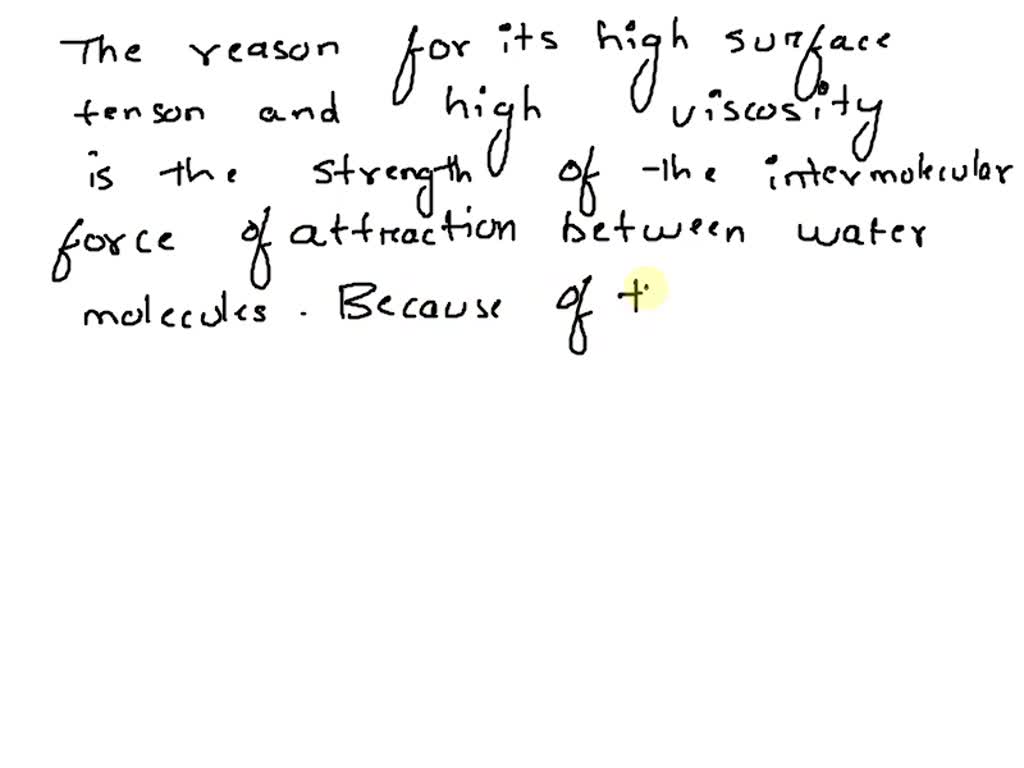 The reason for its high surface
tenson and high viscosity
is the strength of the intermolecular
force of attraction between water
molecules. Because of t